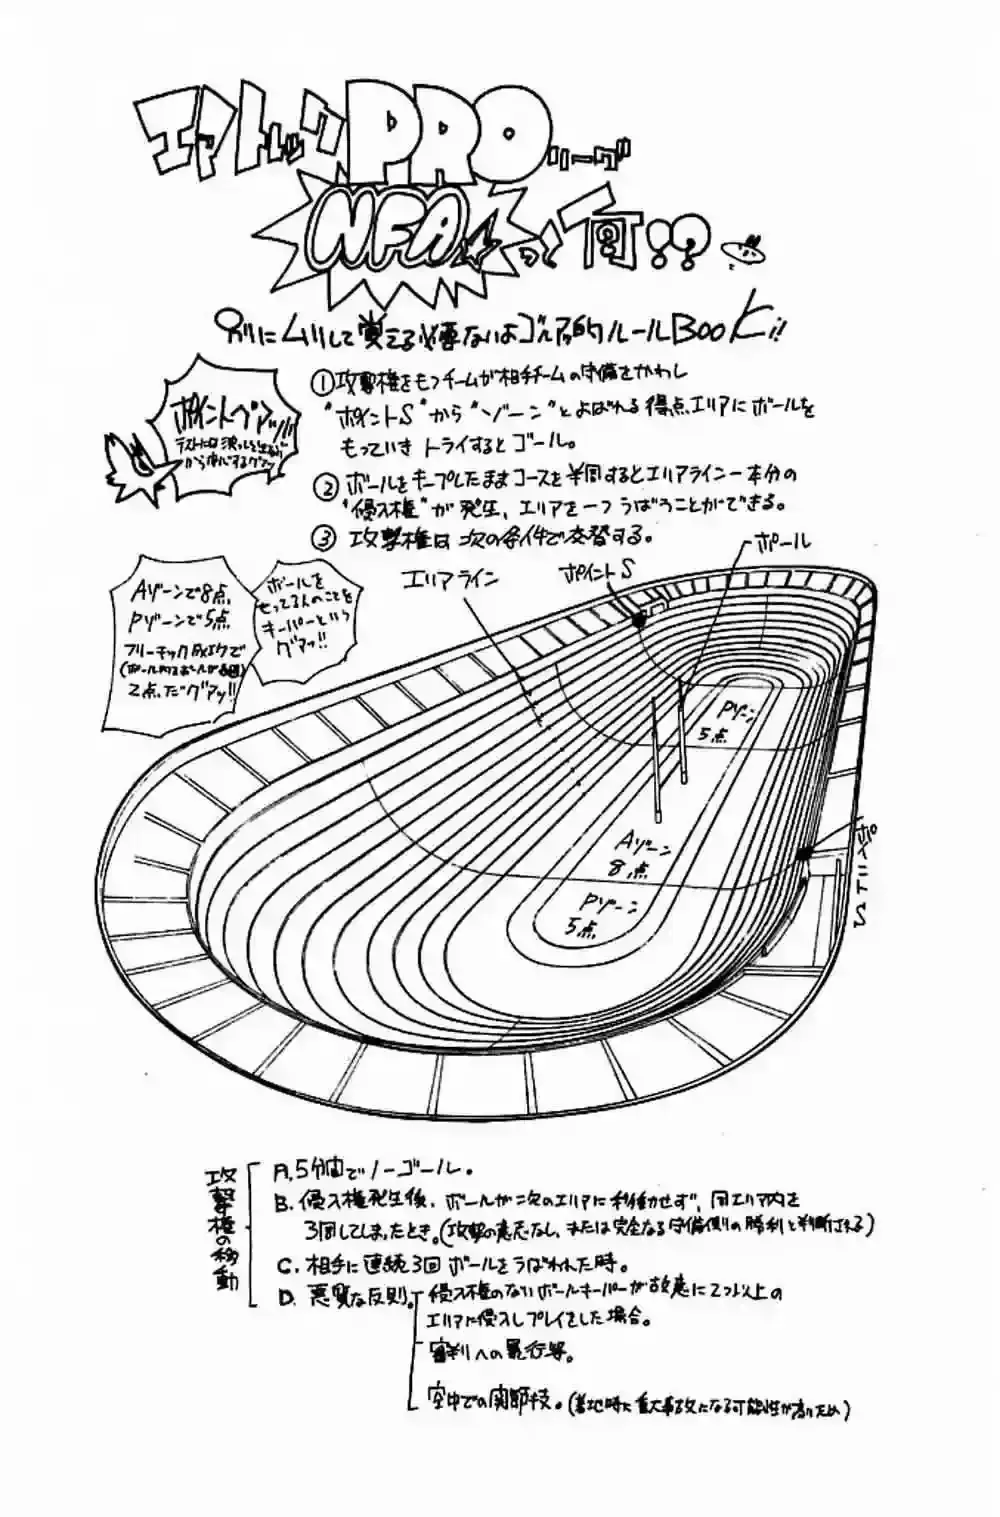 エアトレックPROリーグ
NFAって何!?
別にムリして覚える必要ないよ ゴルァ的ルールBOOK!!
ポイントゲアッ!!
①攻撃権をもつチームが相手チームの守備をかわし
"ポイントS"から"ゾーン"とよばれる得点エリアにボールを
もっていきトライするとゴール。
②ボールをキープしたままコースを半周するとエリアライン一本分の
"侵入権"が発生、エリアを一つうばうことができる。
③攻撃権は次の条件で交替する。
Aゾーンで8点、
Pゾーンで5点
フリーキック成功で
2点だグアッ!!
ボールを
もってる人のことを
キーパーという
グアッ!!
エリアライン
ポイントS
ポール
Pゾーン
5点
Aゾーン
8点
Pゾーン
5点
ポイントS
攻撃権の移動
A.5分間でノーゴール。
B.侵入権発生後、ボールが次のエリアに移動せず、同エリア内を
3周してしまったとき。(攻撃の意志なし、または完全なる守備側の勝利と判断される)
C.相手に連続3回ボールをうばわれた時。
D.悪質な反則。
侵入権のないボールキーパーが故意に2つ以上の
エリアに侵入しプレイをした場合。
審判への暴行等。
空中での関節技。(着地時に重大事故になる可能性が高いため)